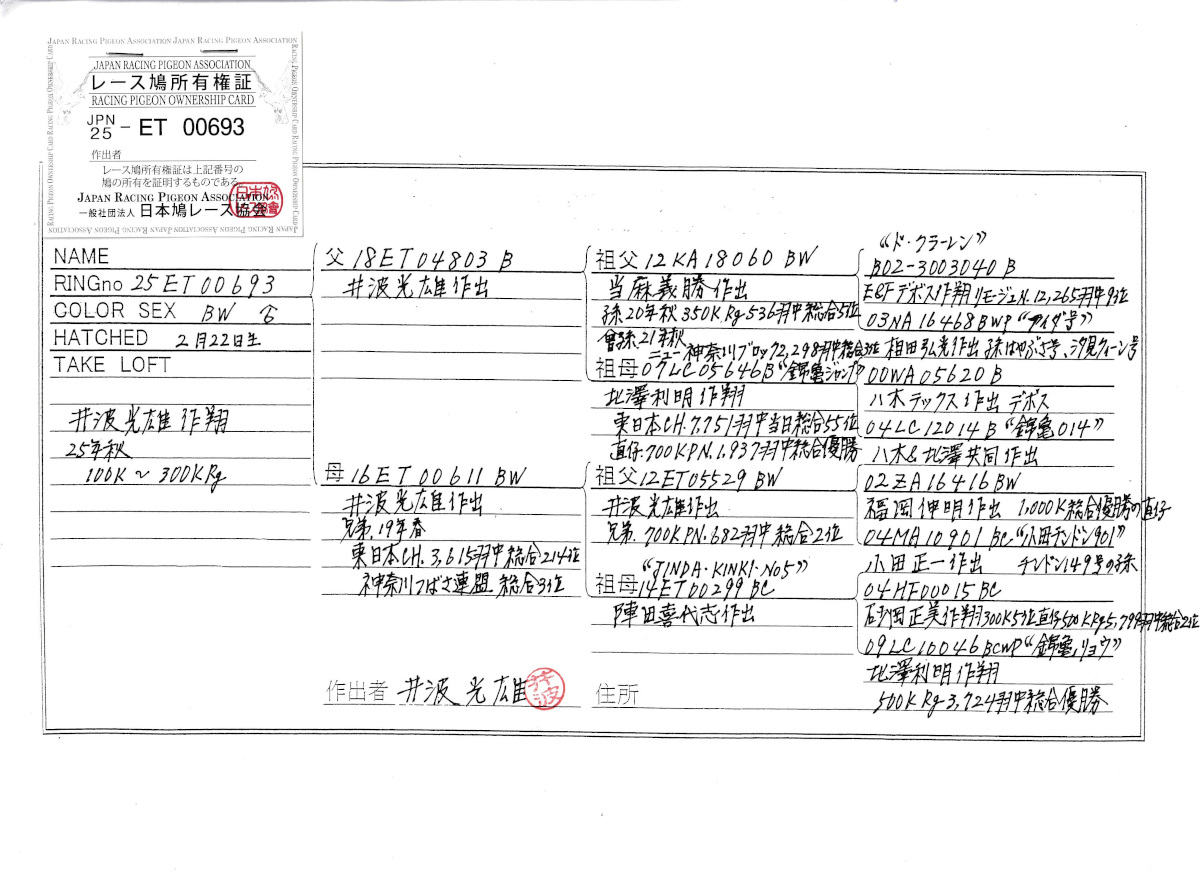 JAPAN RACING PIGEON ASSOCIATION JAPAN RACING PIGEON ASSOCIATION
JAPAN RACING PIGEON ASSOCIATION
レース鳩所有権証
RACING PIGEON OWNERSHIP CARD
JPN
25 - ET 00693
作出者
レース鳩所有権証は上記番号の
鳩の所有を証明するものである。
JAPAN RACING PIGEON ASSOCIATION
一般社団法人 日本鳩レース協会
NAME
RINGno 25ET00693
COLOR SEX BW ♀
HATCHED 2月22日生
TAKE LOFT
井波光雄作翔
25年秋
100K～300KRg
父 18ET04803 B
井波光雄作出
母 16ET00611 BW
井波光雄作出
兄弟.19年春
東日本CH.3,615羽中総合214位
神奈川つばさ連盟 総合3位
作出者 井波光雄
井波
祖父 12KA18060 BW
当麻義勝作出
孫20年秋350K.Rg536羽中総合5位
曾孫21年秋
ニュー神奈川ブロック2,298羽中総合3位
祖母 07LC05646B"錦亀ジャンプ"
北澤利明作翔
東日本CH.7.751羽中当日総合55位
直仔.700KPN.1.937羽中総合優勝
祖父 12ET05529 BW
井波光雄作出
兄弟.700KPN.682羽中総合2位
"JINDA・KINKI・No5"
祖母 14ET00299 BC
陣田喜代志作出
住所
"ド・クラーレン"
B02-3003040 B
E&Fデボス作翔リモージュN.12,265羽中9位
03NA16468BWP"アイダ号"
相田弘光作出 孫はやぶさ号、汐見クィーン号
00WA05620 B
八木テックス作出 デボス
04LC12014 B"錦亀014"
八木&北澤共同作出
02ZA16416BW
福岡伸明作出 1,000K総合優勝の直仔
04MA10901 BC"小田チンドン901"
小田正一作出 チンドン149号の孫
04HF00015BC
石岡正美作翔300K5位直仔500KRg5,799羽中総合2位
09LC10046BCWP"錦亀リョウ"
北澤利明作翔
500KRg3,724羽中総合優勝